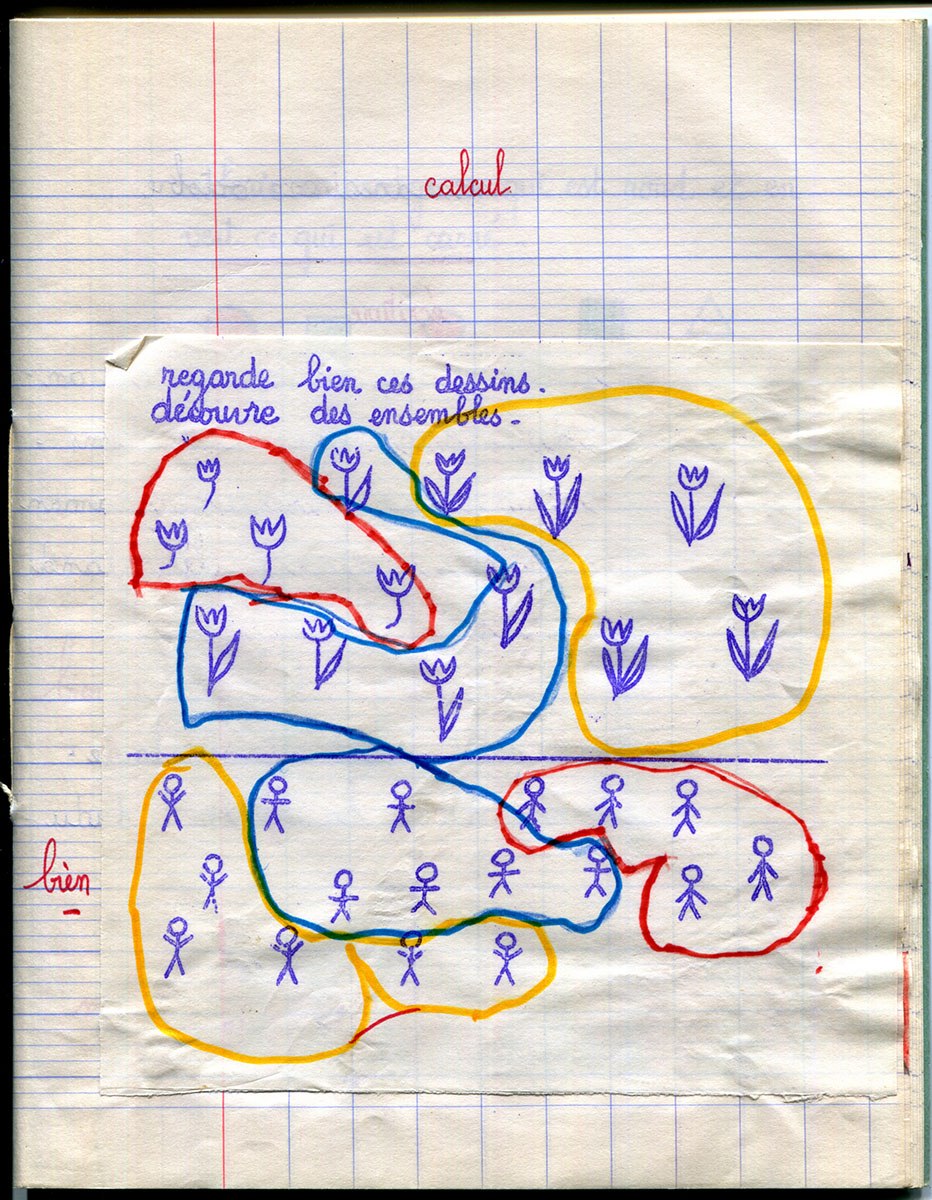 calcul
regarde bien ces dessins.
découvre des ensembles.
bien